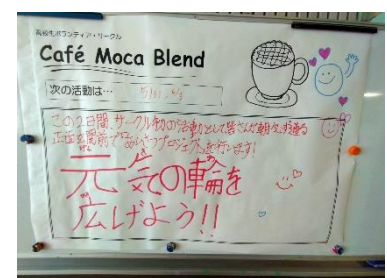 高校生ボランティア・サークル
Café Moca Blend
次の活動は…
この2日間、サークル初の活動として皆さんが朝必ず通る
正面玄関前で"あいさつプロジェクト"を行います!
元気の輪を
広げよう!!